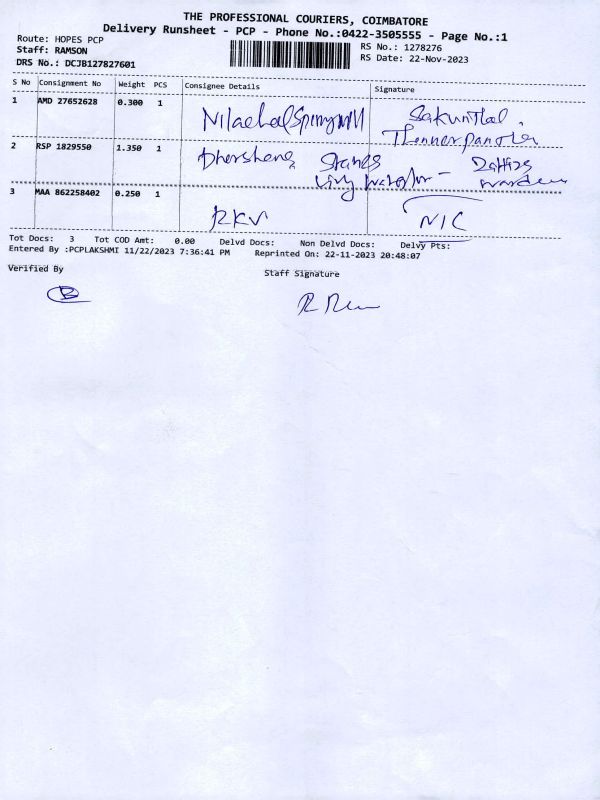 THE PROFESSIONAL COURIERS, COIMBATORE
Delivery Runsheet - PCP - Phone No.:0422-3505555 - Page No.:1
Route: HOPES PCP
Staff: RAMSON
DRS No.: DCJB127827601
RS No.: 1278276
RS Date: 22-Nov-2023
S No Consignment No Weight PCS Consignee Details Signature
1 AMD 27652628 0.300 1
2 RSP 1829550 1.350 1
3 MAA 862258402 0.250 1 RKV NIC
Tot Docs: 3 Tot COD Amt: 0.00 Delvd Docs: Non Delvd Docs: Delvy Pts:
Entered By :PCPLAKSHMI 11/22/2023 7:36:41 PM Reprinted On: 22-11-2023 20:48:07
Verified By Staff Signature